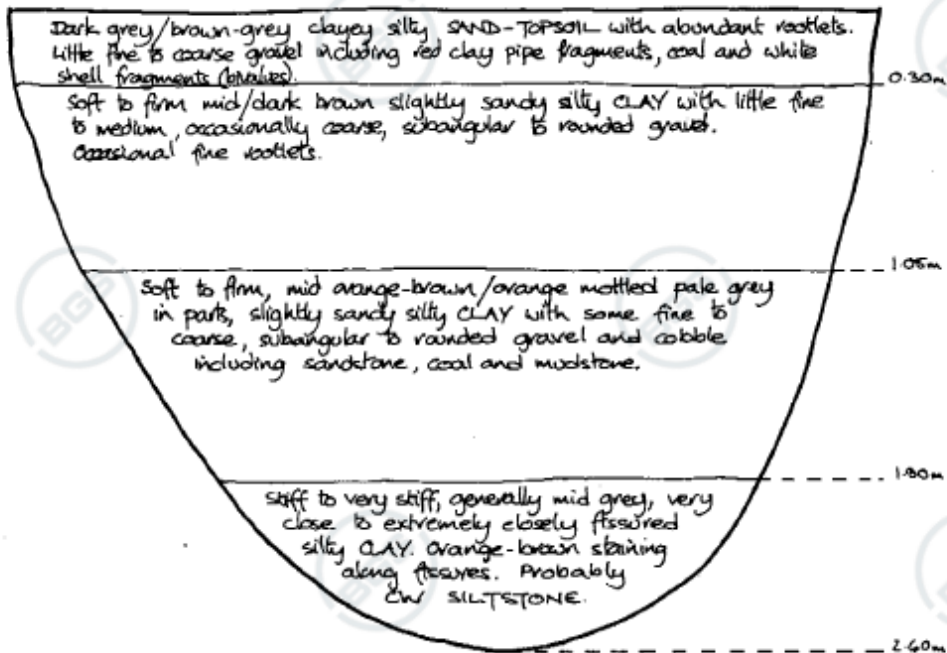 Dark grey/brown-grey clayey silty SAND-TOPSOIL with abundant rootlets.
Little fine to coarse gravel including red clay pipe fragments, coal and white
shell fragments (bivalves).
0.30m
Soft to firm mid/dark brown slightly sandy silty CLAY with little fine
to medium, occasionally coarse, subangular to rounded gravel.
Occasional fine rootlets.
1.05m
Soft to firm, mid orange-brown/orange mottled pale grey
in parts, slightly sandy silty CLAY with some fine to
coarse, subangular to rounded gravel and cobble
including sandstone, coal and mudstone.
1.90m
Stiff to very stiff, generally mid grey, very
close to extremely closely fissured
silty CLAY. Orange-brown staining
along fissures. Probably
CW SILTSTONE.
2.60m
BGS
BGS
BGS